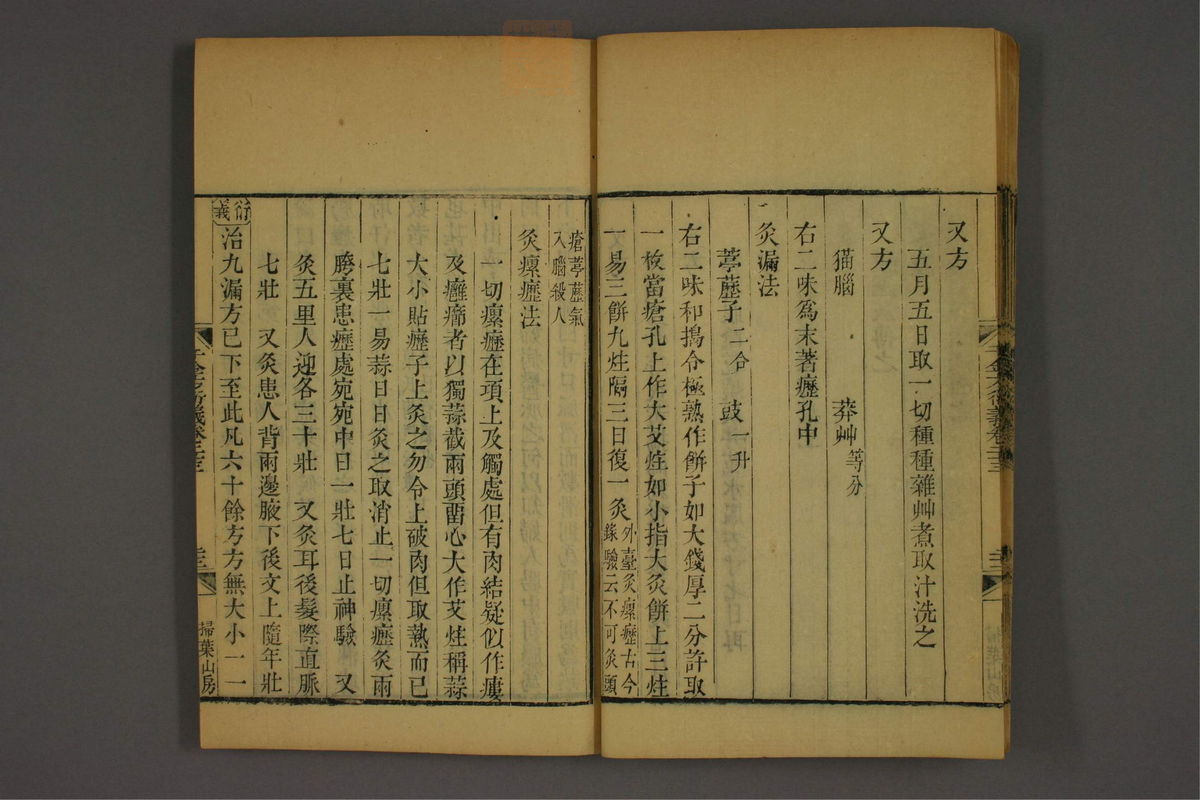 又方
五月五日取一切種種雜艸煮取汁洗之
又方
猫腦　莽艸等分
右二味為末著癧孔中
灸漏法
葶藶子二合　豉一升
右二味和搗令極熟作餅子如大錢厚二分許取
一枚當瘡孔上作大艾炷如小指大灸餅上三炷
一易三餅九炷隔三日復一灸外臺灸瘰癧古今
錄驗云不可灸頭
瘡葶藶氣
入腦殺人
灸瘰癧法
一切瘰癧在項上及觸處但有肉結疑似作瘻
及癰癤者以獨蒜截兩頭留心大作艾炷稱蒜
大小貼癧子上灸之勿令上破肉但取熱而已
七壯一易蒜日日灸之取消止一切瘰癧灸兩
胯裏患癧處宛宛中日一壯七日止神驗　又
灸五里人迎各三十壯　又灸耳後髮際直脈
七壯　又灸患人背兩邊腋下後文上隨年壯
衍義
治九漏方已下至此凡六十餘方方無大小一一
掃葉山房